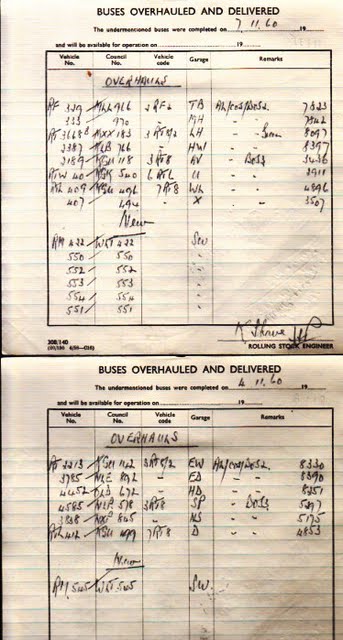 BUSES OVERHAULED AND DELIVERED
The undermentioned buses were completed on 7.11.60 19
and will be available for operation on 19
Vehicle No. Council No. Vehicle code Garage Remarks
OVERHAULS
RF 329 MLL 966 2RF2 TB 7323
333 970 " MH 7342
RT 3668 MXX 183 3RT8/2 LH 8097
2387 KLB 766 HW 8397
2189 118 3RT8 AV 3436
RTW 40 KGK 540 6RT6 U 2911
RTL 409 KGU 496 7RT8 WL 4896
407 494 " X 3507
New
RM 422 WLT 422 SW
550 550 "
552 552 "
553 553 "
554 554 "
551 551 "
308/140
ROLLING STOCK ENGINEER
BUSES OVERHAULED AND DELIVERED
The undermentioned buses were completed on 4.11.60 19
and will be available for operation on 19
Vehicle No. Council No. Vehicle code Garage Remarks
OVERHAULS
RT 2213 KGU 142 3RT8/2 EW 8330
3785 NLE 892 " ED 8390
HD 8251
4585 NXP 578 3RT8 SP 5297
3838 845 " NS 5175
RTL 412 KGU 499 7RT8 D 4853
New
RM 545 WLT 545 SW.